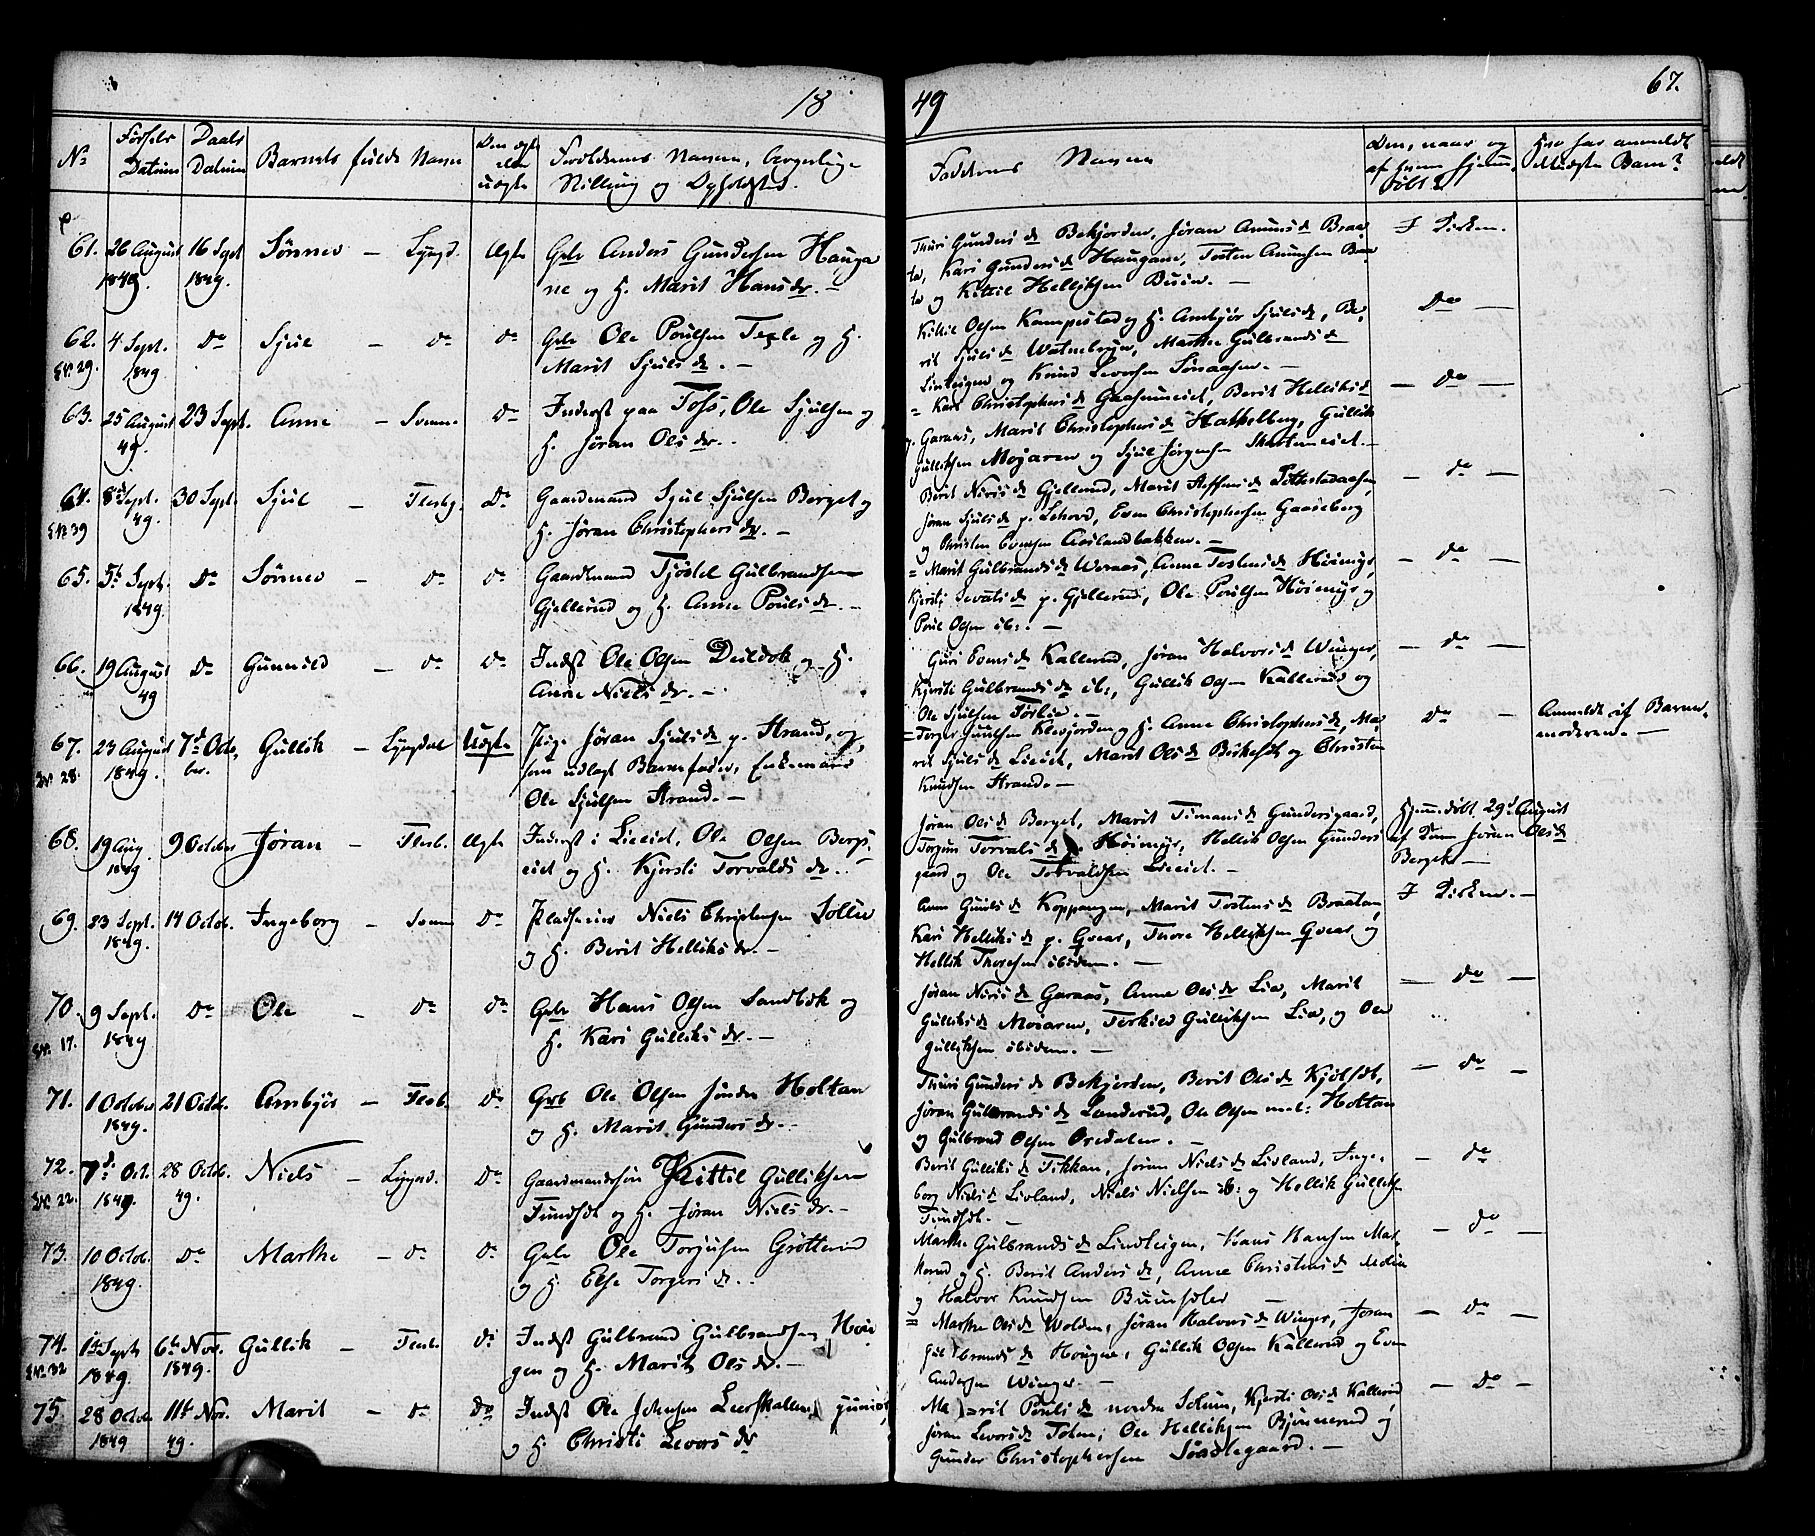 18
49
67.
No
Fødsels Datum
Daabs Datum
Barnets fulde Navn
Den ægte eller uægte
Forældrenes Navne, borgerlige
Stilling og Opholdsted.
Faddernes Navne
Om, naar og
af hvem hjemme
døbt?
61. 26 August 1849. 16 Sept 1849. Sønnev – Lyngd. Ægte
Gbr Anders Gundersen Hauga
ne og H. Marit Hansdr. –
Thuri Gundersd. Bekjorden, Jøran Amunsd. Braa
te, Kari Gundersd. Haugane, Tosten Amunsen Braa
te og Kittil Helliksen Buin. –
I Kirken.
62. 4 Sept. 1849. Do Sjul – Do Do
No 29.
Gbr Ole Poulsen Texle og H.
Marit Sjulsdr. –
Kittil Olsen Kampestad og H. Ambjør Sjulsd., Be
rit Sjulsd. Watnebryn, Marthe Gulbrandsd.
Linteigen og Knud Leversen Sønaasen. –
Do
63. 25 August 49. 23 Sept. Anne – Svenn. Do
Inderst paa Foss, Ole Sjulsen og
H. Jøran Olsdr.
Kari Christophersd. Gaaseneiet, Berit Helliksd.
p. Garaas, Marit Christophersd. Hakkelberg, Gullik
Gulliksen Mojaren og Sjul Jørgensen
– Do –
64. 8de Sept. 49. 30 Sept. Sjul – Flesbg. Do
No 39
Gaardmand Sjul Sjulsen Berget og
H. Jøran Christophersdr. –
Berit Nirisd. Gjellerud, Marit Steffensd.
Jøran Sjulsd. p. Lehovd, Even Christophersen Gaaseberg
og Christen Evensen Aaslandbakken. –
– Do –
65. 5te Sept. 1849. Do Sønnev – Do Do
Gaardmand Tjøstel Gulbrandsen
Gjellerud og H. Anne Poulsdr. –
Marit Gulbrandsd. Weraas, Anne Tostensd. Høimyr,
Kjersti Sevatsd. p. Gjellerud, Ole Poulsen Høimyr og
Poul Olsen ib:. –
– Do –
66. 19 August 49 Do Gunnild – Do Do
Indst Ole Olsen Duldok og H.
Anne Nielsdr. –
Guri Evensd. Kallerud, Jøran Halvorsd. Winger,
Kjersti Gulbrandsd. ib:, Gullik Olsen Kallerud og
Ole Sjulsen Førlie. –
– Do –
67. 23 August 1849. 7de Octo
ber. Gullik – Lyngdal Uægte
No 28.
Pige Jøran Sjulsd. p. Strand, og
som udlagt Barnefader, Enkemand
Ole Sjulsen Strand. –
Torger Juulsen Klevjorden og H. Anne Christophersd., Ma
rit Sjulsd. Lieiet, Marit Olsd. Birkesdt og Christen
Knudsen Strand. –
Do –
Anmeldt af Barne-
moderen. –
68. 19 Aug. 1849 9 October Jøran – Flesb. Ægte
Inderst i Lieeiet, Ole Olsen Bergs-
eiet og H. Kjersti Torvaldsdr.
Jøran Olsd. Berget, Marit Timansd. Gundersgaard,
Jørgine Torvalsd. Høimyr, Hellik Olsen Gunders
gaard og Ole Torvaldsen Lieeiet. –
Hjemmedøbt 29de August
af Dem Jøran Olsd.
Berget –
69. 23 Sept. 1849. 14 Octob. Ingeborg – Svenn Do
Pladseeier Niels Christensen Sollie
og H. Berit Helliksdr. –
Anne Guulsd. Koppangen, Marit Tostensd. Braaten,
Kari Helliksd. p. Qvear, Thore Helliksen Qvear og
Hellik Thoresen ibidem. –
I Kirken. –
70. 9 Sept. 1849 Do Ole – Do Do
No 17.
Gbr Hans Olsen Sandbæk og
H. Kari Gulliksdr. –
Jøran Nirisd. Garaas, Anne Olsdr Lia, Marit
Gulliksd. Moiaren, Terkild Gulliksen Lia, og Ole
Gulliksen ibidem. –
– Do –
71. 1 October 1849. 21 Octob. Ambjør – Flesb. Do
Gbr Ole Olsen søndre Holtan
og H. Marit Gundersdr. –
Thuri Gundersd. Bekjorden, Berit Olsd. Kjølsdt,
Jøran Gulbrandsd. Landerud, Ole Olsen med: Holtan
og Gulbrand Olsen Ordalen. –
– Do –
72. 7de Oct. 1849. 28 Octob. 49. Niels – Lyngd. Do
No 22.
Gaardmandssøn Kittil Gulliksen
Fundsdt og H. Jøran Nielsdr. –
Berit Gulliksd. Fikkan, Jøran Nielsd. Livland, Inge-
borg Nielsd. Livland, Niels Nielsen ib: og Hellik Gulliks.
Fundsdt. –
– Do
73. 10 Octob. 1849. Do Marthe – Do Do
Gbr Ole Torjusen Grøtterud
og H. Else Torgersdr.
Marthe Gulbrandsd. Lindteigen, Hans Hansen Mar
kerud og H. Berit Andersd., Anne Christensd. Molia
og Halvor Knudsen
– Do –
74. 1ste Sept 1849. 6te Nov. 1849. Gullik – Flesb. Do
No 32
Indst Gulbrand Gulbrandsen Houe
gen og H. Marit Olsdr. –
Marthe Olsd. Wolden, Jøran Halvorsd. Winger, Jøran
Gulbrandsd. Hougen, Gullik Olsen Kallerud og Even
Andersen Winger. –
– Do –
75 28 Octob 1849 11te Nov. 49. Marit – Do Do
Indst Ole Johnsen junior,
og H. Christi Leversdr
Marit Poulsd. nordre Solum, Kjersti Olsd. Kallerud,
Jøran Leversd. Tolen, Ole Helliksen Bjønnerud og
Gunder Christophersen Søndlegaard. –
– Do –